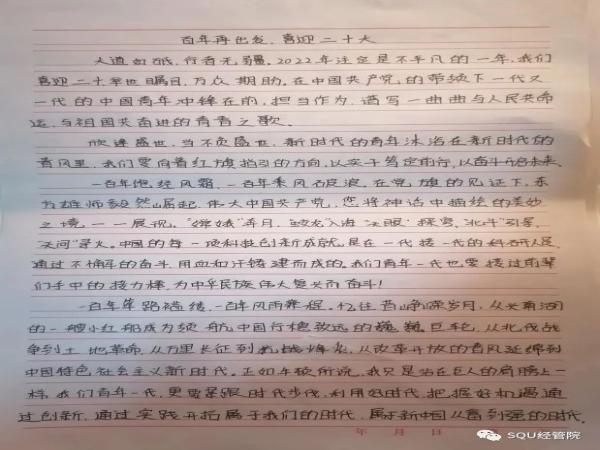 百年再出发,喜迎二十大
大道如砥,行者无疆。2022年注定是不平凡的一年,我们
喜迎二十举世瞩目,万众期助。在中国共产党的带领下一代又
一代的中国青年冲锋在前,担当作为,谱写一曲曲与人民共命
运,与祖国共奋进的青春之歌。
欣逢盛世,当不负盛世,新时代的青年沐浴在新时代的
春风里,我们要向着红旗指引的方向,以实干笃定前行,以奋斗开启未来。
一百年饱经风霜,一百年乘风破浪,在党旗的见证下,东
方雄师毅然崛起,伟大中国共产党,您将神话中描绘的美妙
之境,一一展现。"嫦娥"奔月,"蛟龙"入海"天眼"探穹,"北斗"引导,
"天问"寻火。中国的每一项科技创新成就,是在一代接一代的科研人员
通过不懈的奋斗,用血和汗铸建而成的。我们青年一代也要接过前辈
们手中的接力棒,为中华民族伟大复兴而奋斗!
一百年路褴缕,一百年风雨兼程。忆往昔峥嵘岁月,从头南湖
的一艘小红船成为领航中国行稳致远的巍巍巨轮,从北伐战
争到土地革命,从万里长征到抗战烽火,从改革开放的春风延绵到
中国特色社会主义新时代。正如牛顿所说,我只是站在巨人的肩膀上一
样,我们青年一代,更要紧跟时代步伐,利用好时代,把握好机遇通
过创新,通过实践开拓属于我们的时代,属于新中国从富到强的时代。
年 月 日
SQU经管院